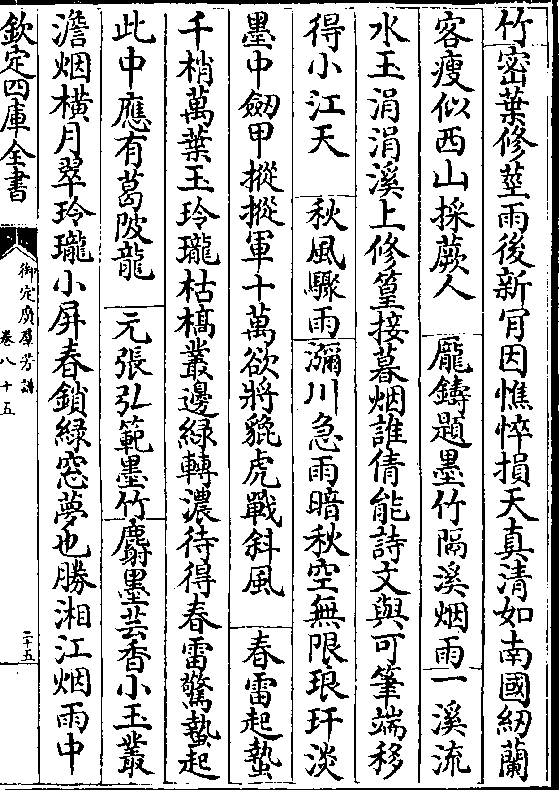 竹密葉修莖雨後新肎因憔悴損天真清如南國紉蘭
客瘦似西山採蕨人　龎鑄題墨竹隔溪烟雨一溪流
水玉涓涓溪上修篁接暮烟誰倩能詩文與可筆端移
得小江天　秋風驟雨瀰川急雨暗秋空無限琅玕淡
墨中劒甲摐摐軍十萬欲將貔虎戰斜風　春雷起蟄
千梢萬葉玉玲瓏枯槁叢邊綠轉濃待得春雷驚蟄起
此中應有葛陂龍　元張弘範墨竹麝墨芸香小玉叢
澹烟橫月翠玲瓏小屏春鎖綠窓夢也勝湘江烟雨中
欽定四庫全書
御定廣羣芳譜
卷八十五
二十五